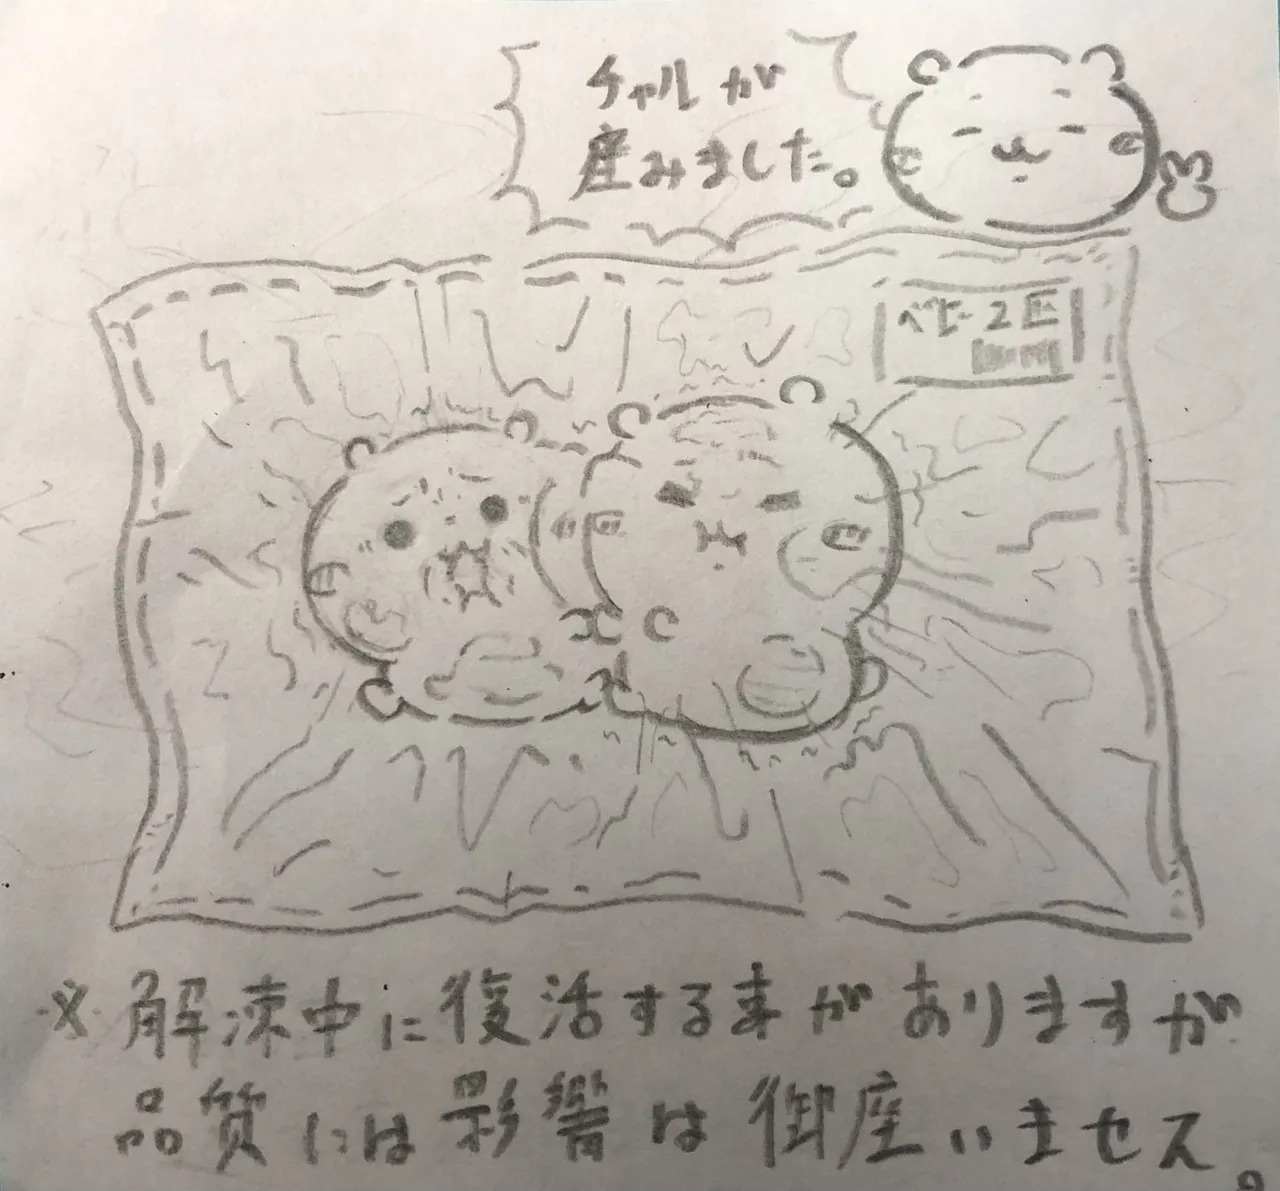 チャルが
産みました。
ベビー2匹
※解凍中に復活する事がありますが
品質には影響は御座いませヌ。